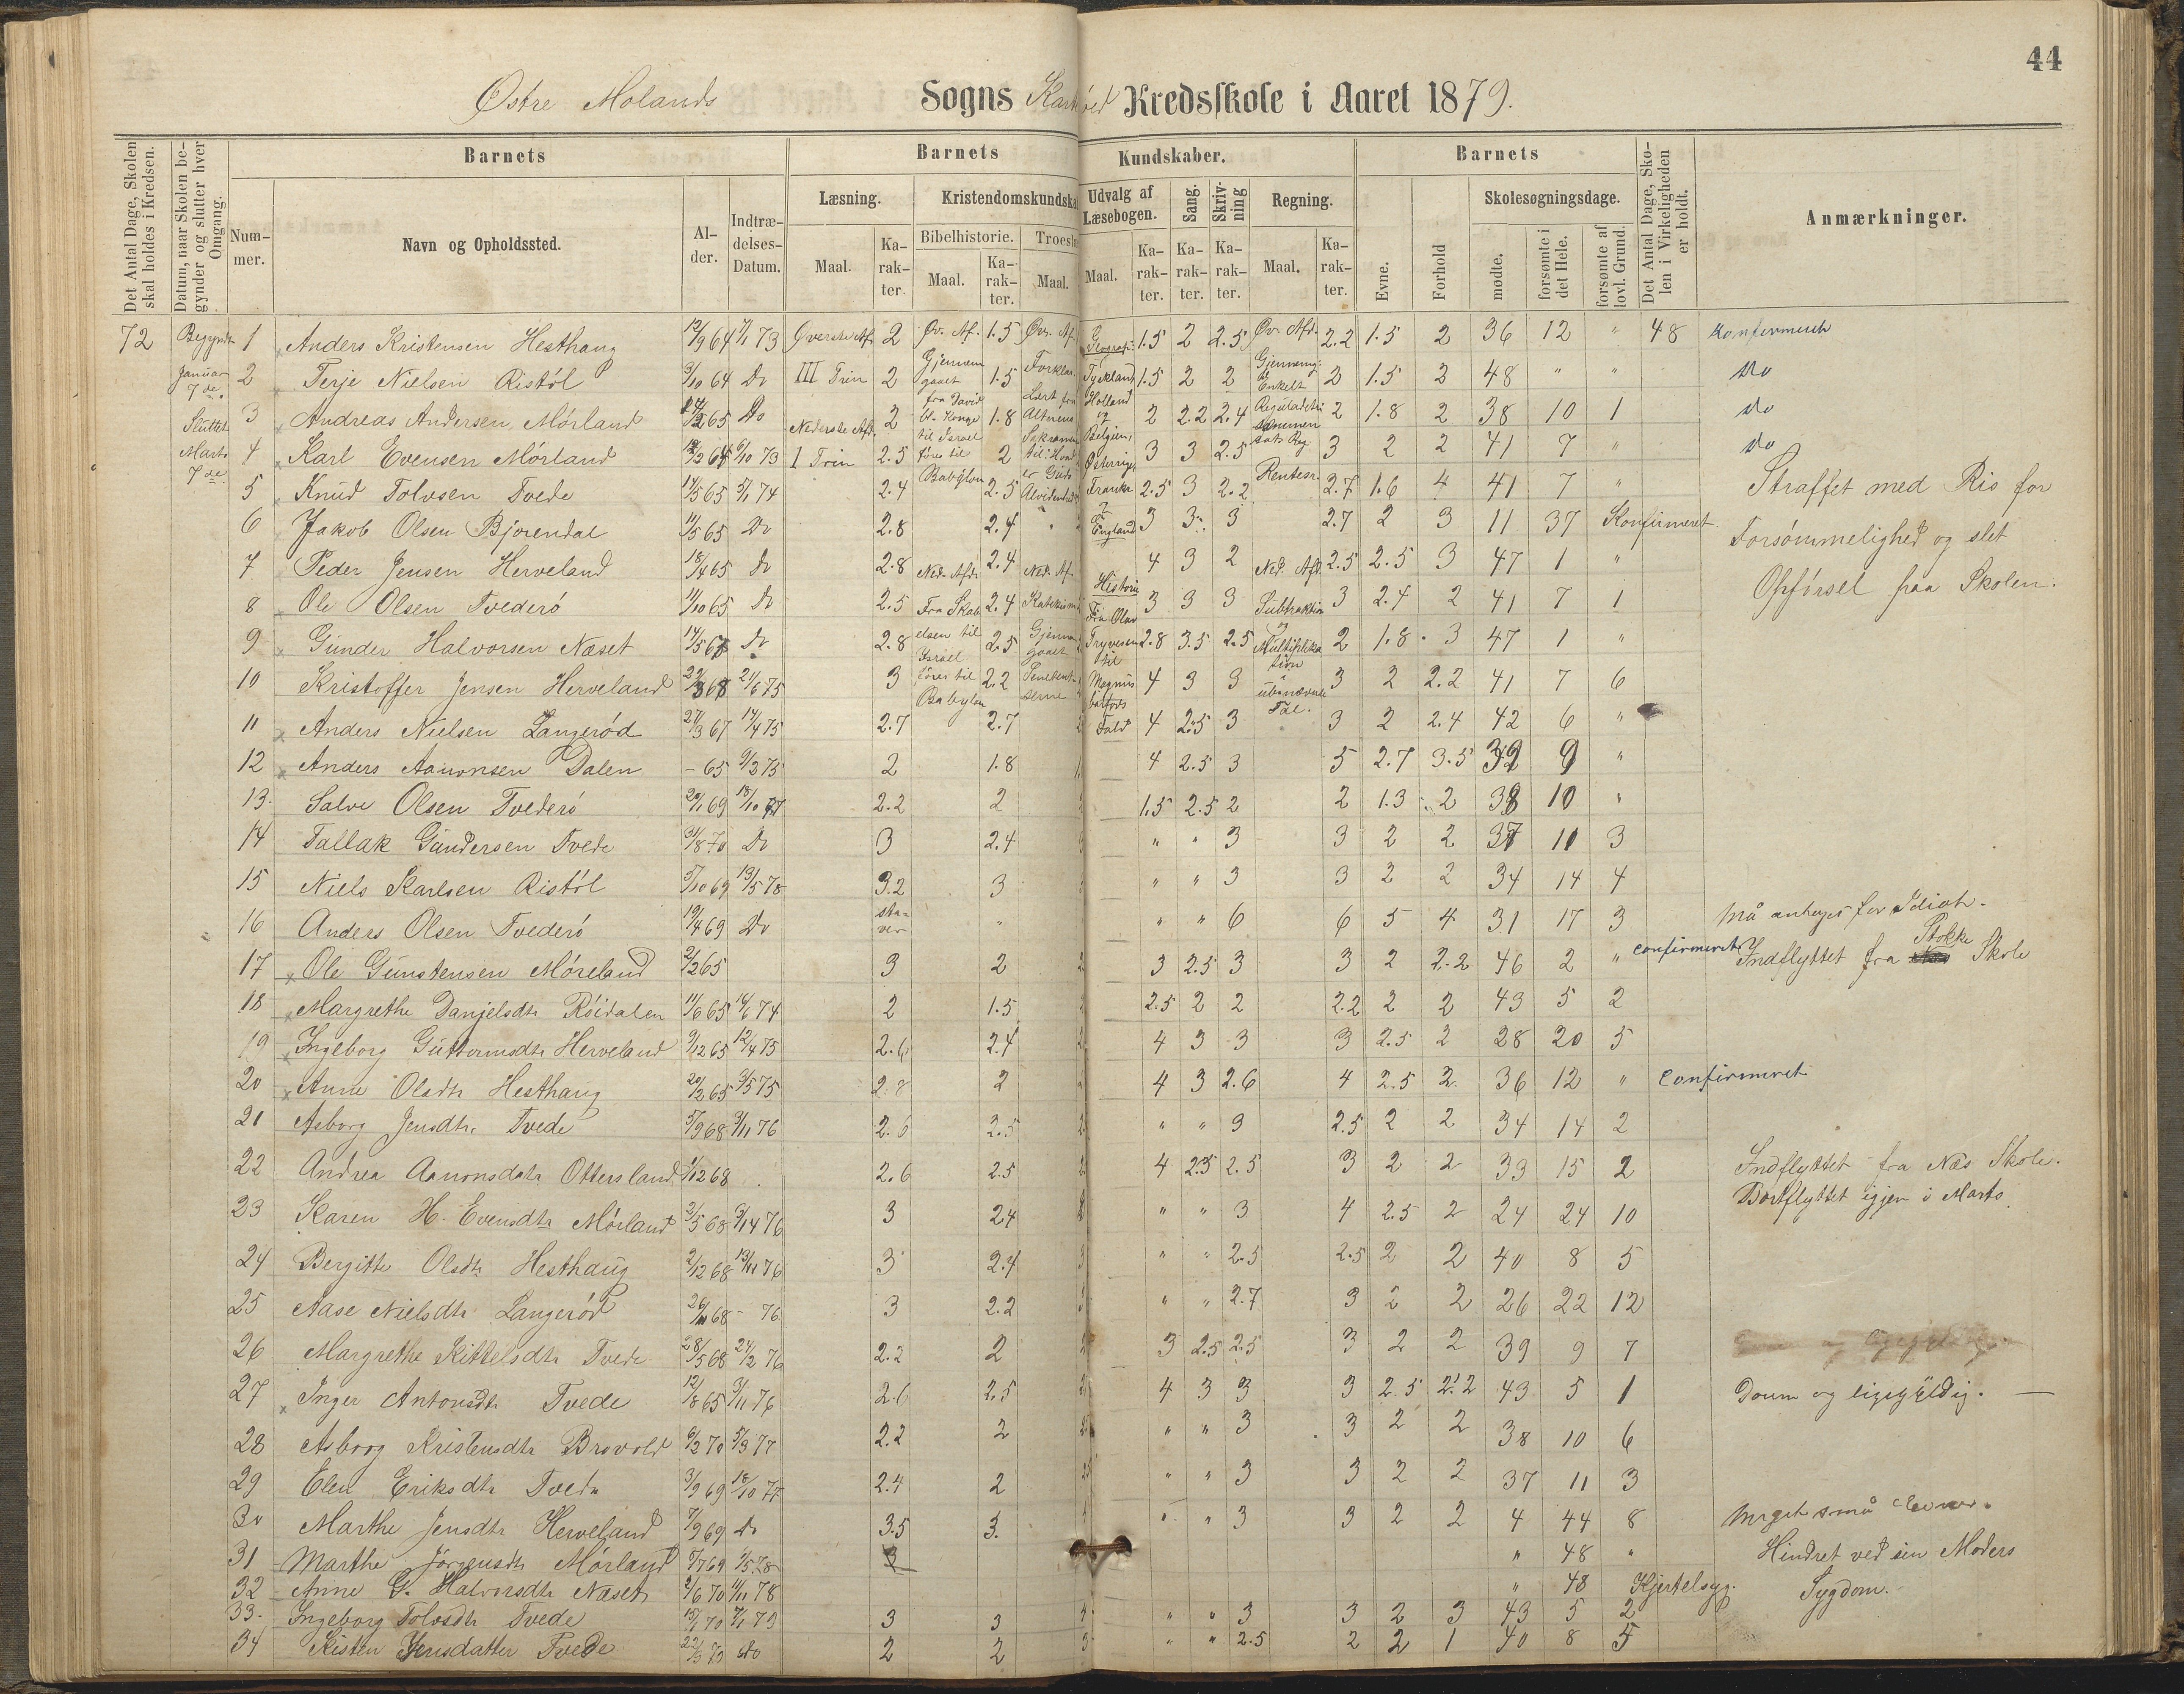 44
Østre Molands Sogns Kredsskole i Aaret 1879.
Det Antal Dage, Skolen skal holdes i Kredsen.
Datum, naar Skolen begynder og slutter hver Omgang.
Barnets
Barnets Kundskaber.
Barnets
Det Antal Dage, Skolen i Virkeligheden er holdt.
Anmærkninger.
Nummer.
Navn og Opholdssted.
Alder.
Indtrædelses-Datum.
Læsning.
Kristendomskundska
Udvalg af Læsebogen.
Sang.
Skrivning
Regning.
Evne.
Forhold
Skolesøgningsdage.
Bibelhistorie.
Troesl
Maal.
Karakter.
Maal.
Karakter.
Maal.
Maal.
Karakter.
Karakter.
Karakter.
Maal.
Karakter.
mødte.
forsømte i det Hele.
forsømte af lovl. Grund.
72 Begyndt Januar 7de. Sluttet Marts 7de
1 Anders Kristensen Hesthaug 12/9 64 7/1 73 Øverste Afd. 2 Øv. Af. 1.5 Øvr. Af. Geografi: 1.5 2 2.5 Øv. Afd. 2.2 1.5 2 36 12 " 48 Konfirmeret
2 Terje Nielsen Ristöl 9/10 64 Do III Trin 2 Gjennemgaaet 1.5 Forklar. Tyskland, 1.5 2 2 Enkelt 2 1.5 2 48 " " Do
3 Andreas Andersen Mörland 2 65 Do Nederste Afd. 2 fra David bl. Konge til Israel 1.8 Lært fra Alterens Holland og 2 2.2 2.4 Reguladetri 2 1.8 2 38 10 1 Do
4 Karl Evensen Mörland 6/10 73 I Trin 2.5 føres til 2 Belgien, 3 3 2.5 sammensats Reg. 3 2 2 41 7 " Do
5 Knud Tolvsen Tvede 14/5 65 5/1 74 2.4 Babylon 2.5 er Guds Østerrige, Frankr. 2.5 3 2.2 Rentesr. 2.7 1.6 4 41 7 " Straffet med Ris for
6 Jakob Olsen Bjorendal 11/5 65 Do 2.8 2.4 og England 3 3 3 2.7 2 3 11 37 Konfirmeret. Forsömmelighed og slet
7 Peder Jensen Herveland 18/4 65 Do 2.8 Ned. Afd. 2.4 Ned. Af. 4 3 2 Ned. Afd. 2.5 2.5 3 47 1 " Opförsel paa Skolen.
8 Ole Olsen Tvederö 11/10 65 Do 2.5 Fra Skab 2.4 Historie 3 3 3 Subtraktion 3 2.4 2 41 7 1
9 Gunder Halvorsen Næset 14/5 Do 2.8 elsen til 2.5 Gjennemgaaet Fra Olav Tryvesen 2.8 3.5 2.5 og Multiplikation 2 1.8 3 47 1 "
10 Kristoffer Jensen Herveland 68 21/6 75 3 Israel föres til Babylon 2.2 til Magnus 4 3 3 i ubenævnte Tal. 3 2 2.2 41 7 6
11 Anders Nielsen Langeröd 27/3 67 14/4 75 2.7 2.7 Barfods Fald 4 2.5 3 3 2 2.4 42 6 "
12 Anders Aanonsen Dalen - 65 9/2 75 2 1.8 4 2.5 3 5 2.7 3.5 39 9 "
13. Salve Olsen Tvederö 20/1 69 18/10 77 2.2 2 1.5 2.5 2 2 1.3 2 38 10 "
14 Tallak Gundersen Tvede 31/8 70 Do 3 2.4 " " 3 3 2 2 37 11 3
15 Niels Karlsen Ristöl 5/10 69 13/5 78 3.2 3 " " 3 3 2 2 34 14 4
16 Anders Olsen Tvederö 19/4 69 Do staver " " " 6 6 5 4 31 17 3 Må antages for Idiot.
17 Ole Gunstensen Möreland 2/2 65 3 2 3 2.5 3 3 2 2.2 46 2 " confirmeret Indflyttet fra Stokke Skole
18 Margrethe Danjelsdtr Röidalen 11/6 65 14/6 74 2 1.5 2.5 2 2 2.2 2 2 43 5 2
19 Ingeborg Guttormsdtr Herveland 9/12 65 12/4 75 2.6 2.4 4 3 3 3 2.5 2 28 20 5
20 Anne Olsdtr Hesthaug 20/2 65 3/5 75 2.8 2 4 3 2.6 4 2.5 2 36 12 " confirmeret
21 Asborg Jensdtr. Tvede 5/9 68 9/11 76 2.6 2.5 " " 3 2.5 2 2 34 14 2
22 Andrea Aanonsdatr Ottersland 1/12 68 2.6 2.5 4 2.5 2.5 3 2 2 33 15 2 Indflyttet fra Næs Skole.
Bortflyttet igjen i Marts.
23 Karen H. Evensdtr Mörland 2/5 68 76 3 2.4 " " 3 4 2.5 2 24 24 10
24 Bergitte Olsdtr Hesthaug 2/12 68 13/11 76 3 2.4 " " 2.5 2.5 2 2 40 8 5
25 Aase Nielsdtr Langeröd 68 - 76 3 2.2 " " 2.7 3 2 2 26 22 12
26 Margrethe Kittelsdtr Tvede 28/5 68 24/2 76 2.2 2 3 2.5 2.5 3 2 2 39 9 7
27 Inger Antonsdtr Tvede 12/8 65 9/11 76 2.6 2.5 4 3 3 3 2.5 2.2 43 5 1 Doven og ligegyldig.
28 Asborg Kristensdtr Brovold 6/2 70 5/9 77 2.2 2 " " 3 3 2 2 38 10 6
29 Elen Eriksdtr Tvede 3/9 69 18/10 77 2.4 2 " " 3 3 2 2 37 11 3
30 Marthe Jensdtr Herveland 7/9 69 Do 3.5 3. " " 3 3 2 2 4 44 8 Meget små Evner.
31 Marthe Jörgensdtr Mörland 78 3 " 48 " Hindret ved sin Moders
32 Anne G. Halvorsdtr Næset 2/6 70 11/11 78 " 48 Kjertelsyg. Sygdom.
33. Ingeborg Tolvsdtr Tvede 70 7/1 79 3 3 " " 3 3 2 3 43 5 2
34 Kisten Jensdatter Tvede Do 2 2 " " 2.5 2 2 1 40 8 5